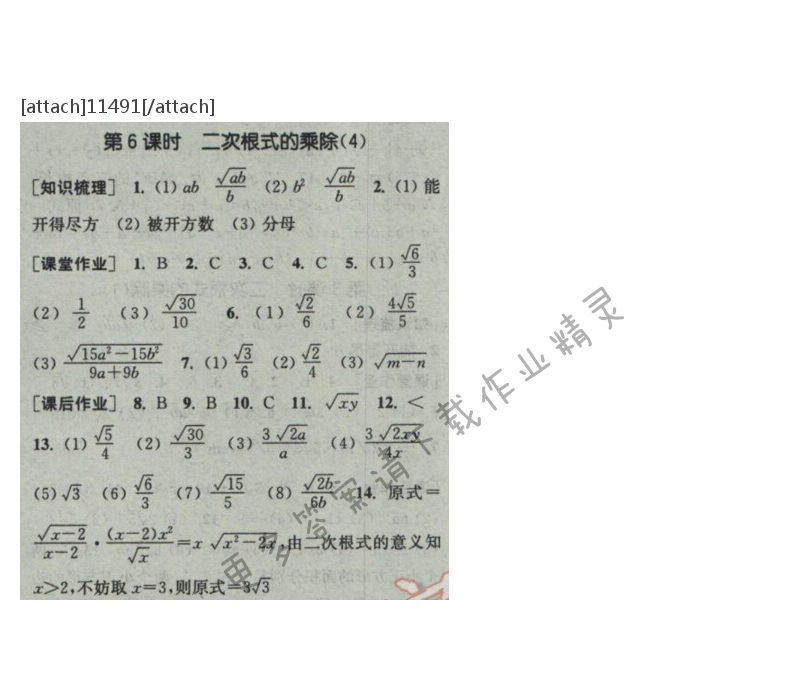 [attach]11491[/attach]
第6课时 二次根式的乘除(4)
[知识梳理] 1. (1) ab √ab/b (2) b² √ab/b 2. (1) 能
开得尽方 (2) 被开方数 (3) 分母
[课堂作业] 1. B 2. C 3. C 4. C 5. (1) √6/3
(2) 1/2 (3) √30/10 6. (1) √2/6 (2) 4√5/5
(3) √(15a²-15b²)/(9a+9b) 7. (1) √3/6 (2) √2/4 (3) √(m-n)
[课后作业] 8. B 9. B 10. C 11. √xy 12. <
13. (1) √5/4 (2) √30/3 (3) 3√2a/a (4) 3√2xy/4x
(5) √3 (6) √6/3 (7) √15/5 (8) √2b/6b 14. 原式=
√(x-2)/(x-2)·(x-2)x²/√x=x√(x²-2x),由二次根式的意义知
x>2,不妨取x=3,则原式=3√3
更多答案请下载作业精灵